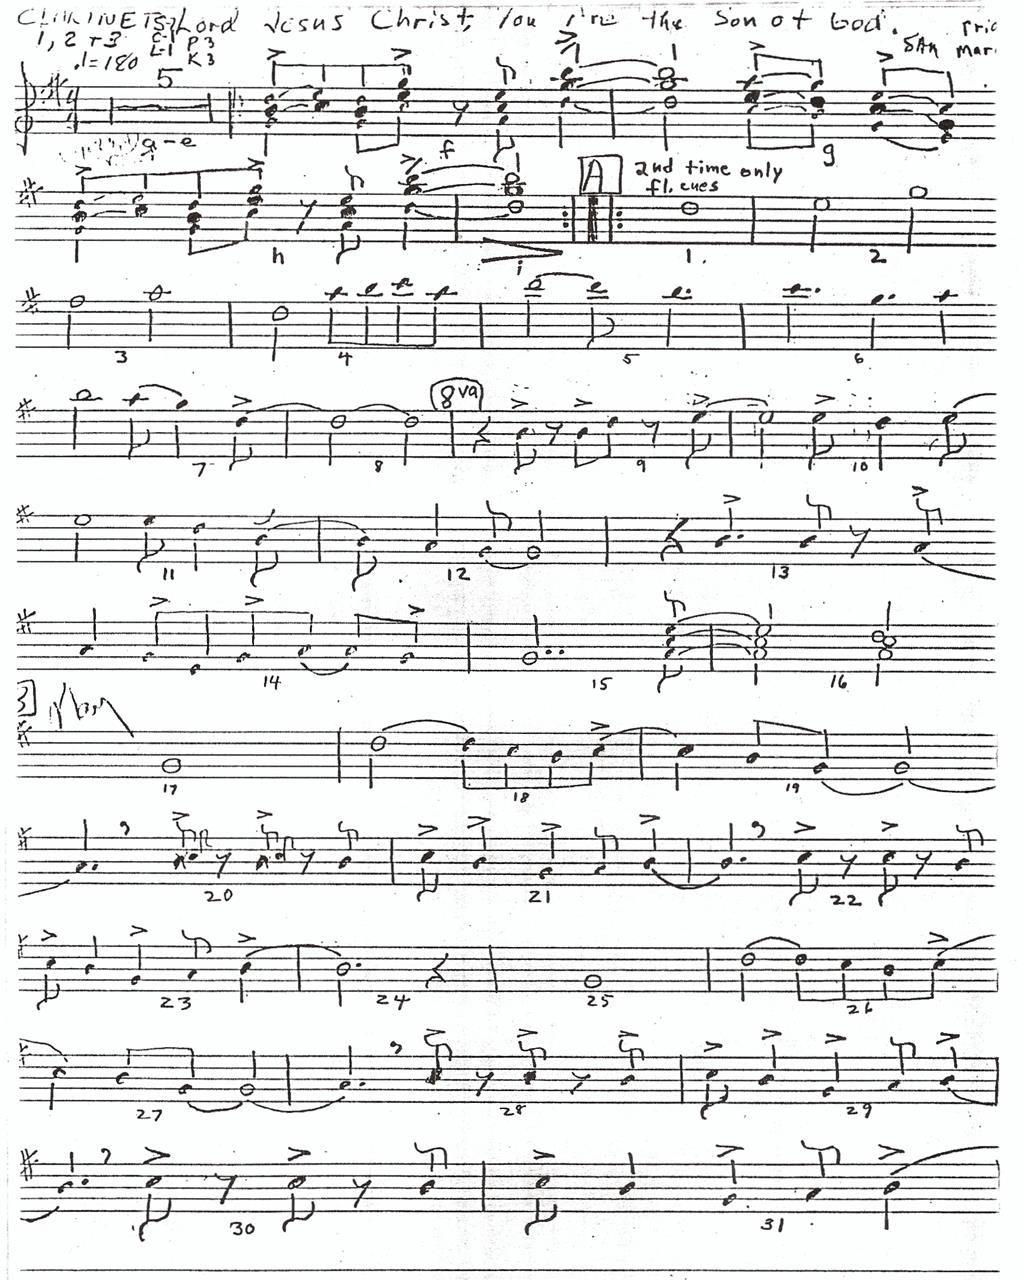 CLARINETS Lord Jesus Christ, You Are the Son of God.
1, 2 + 3 C-1 P 3
L-1 K 3
♩=180 5 SAH Mari
a-e f g
A 2nd time only
fl. cues
h i 1. 2
3 4 5 6
8va
7 8 9 10
11 12 13
14 15 16
17 18 19
20 21 22
23 24 25 26
27 28 29
30 31